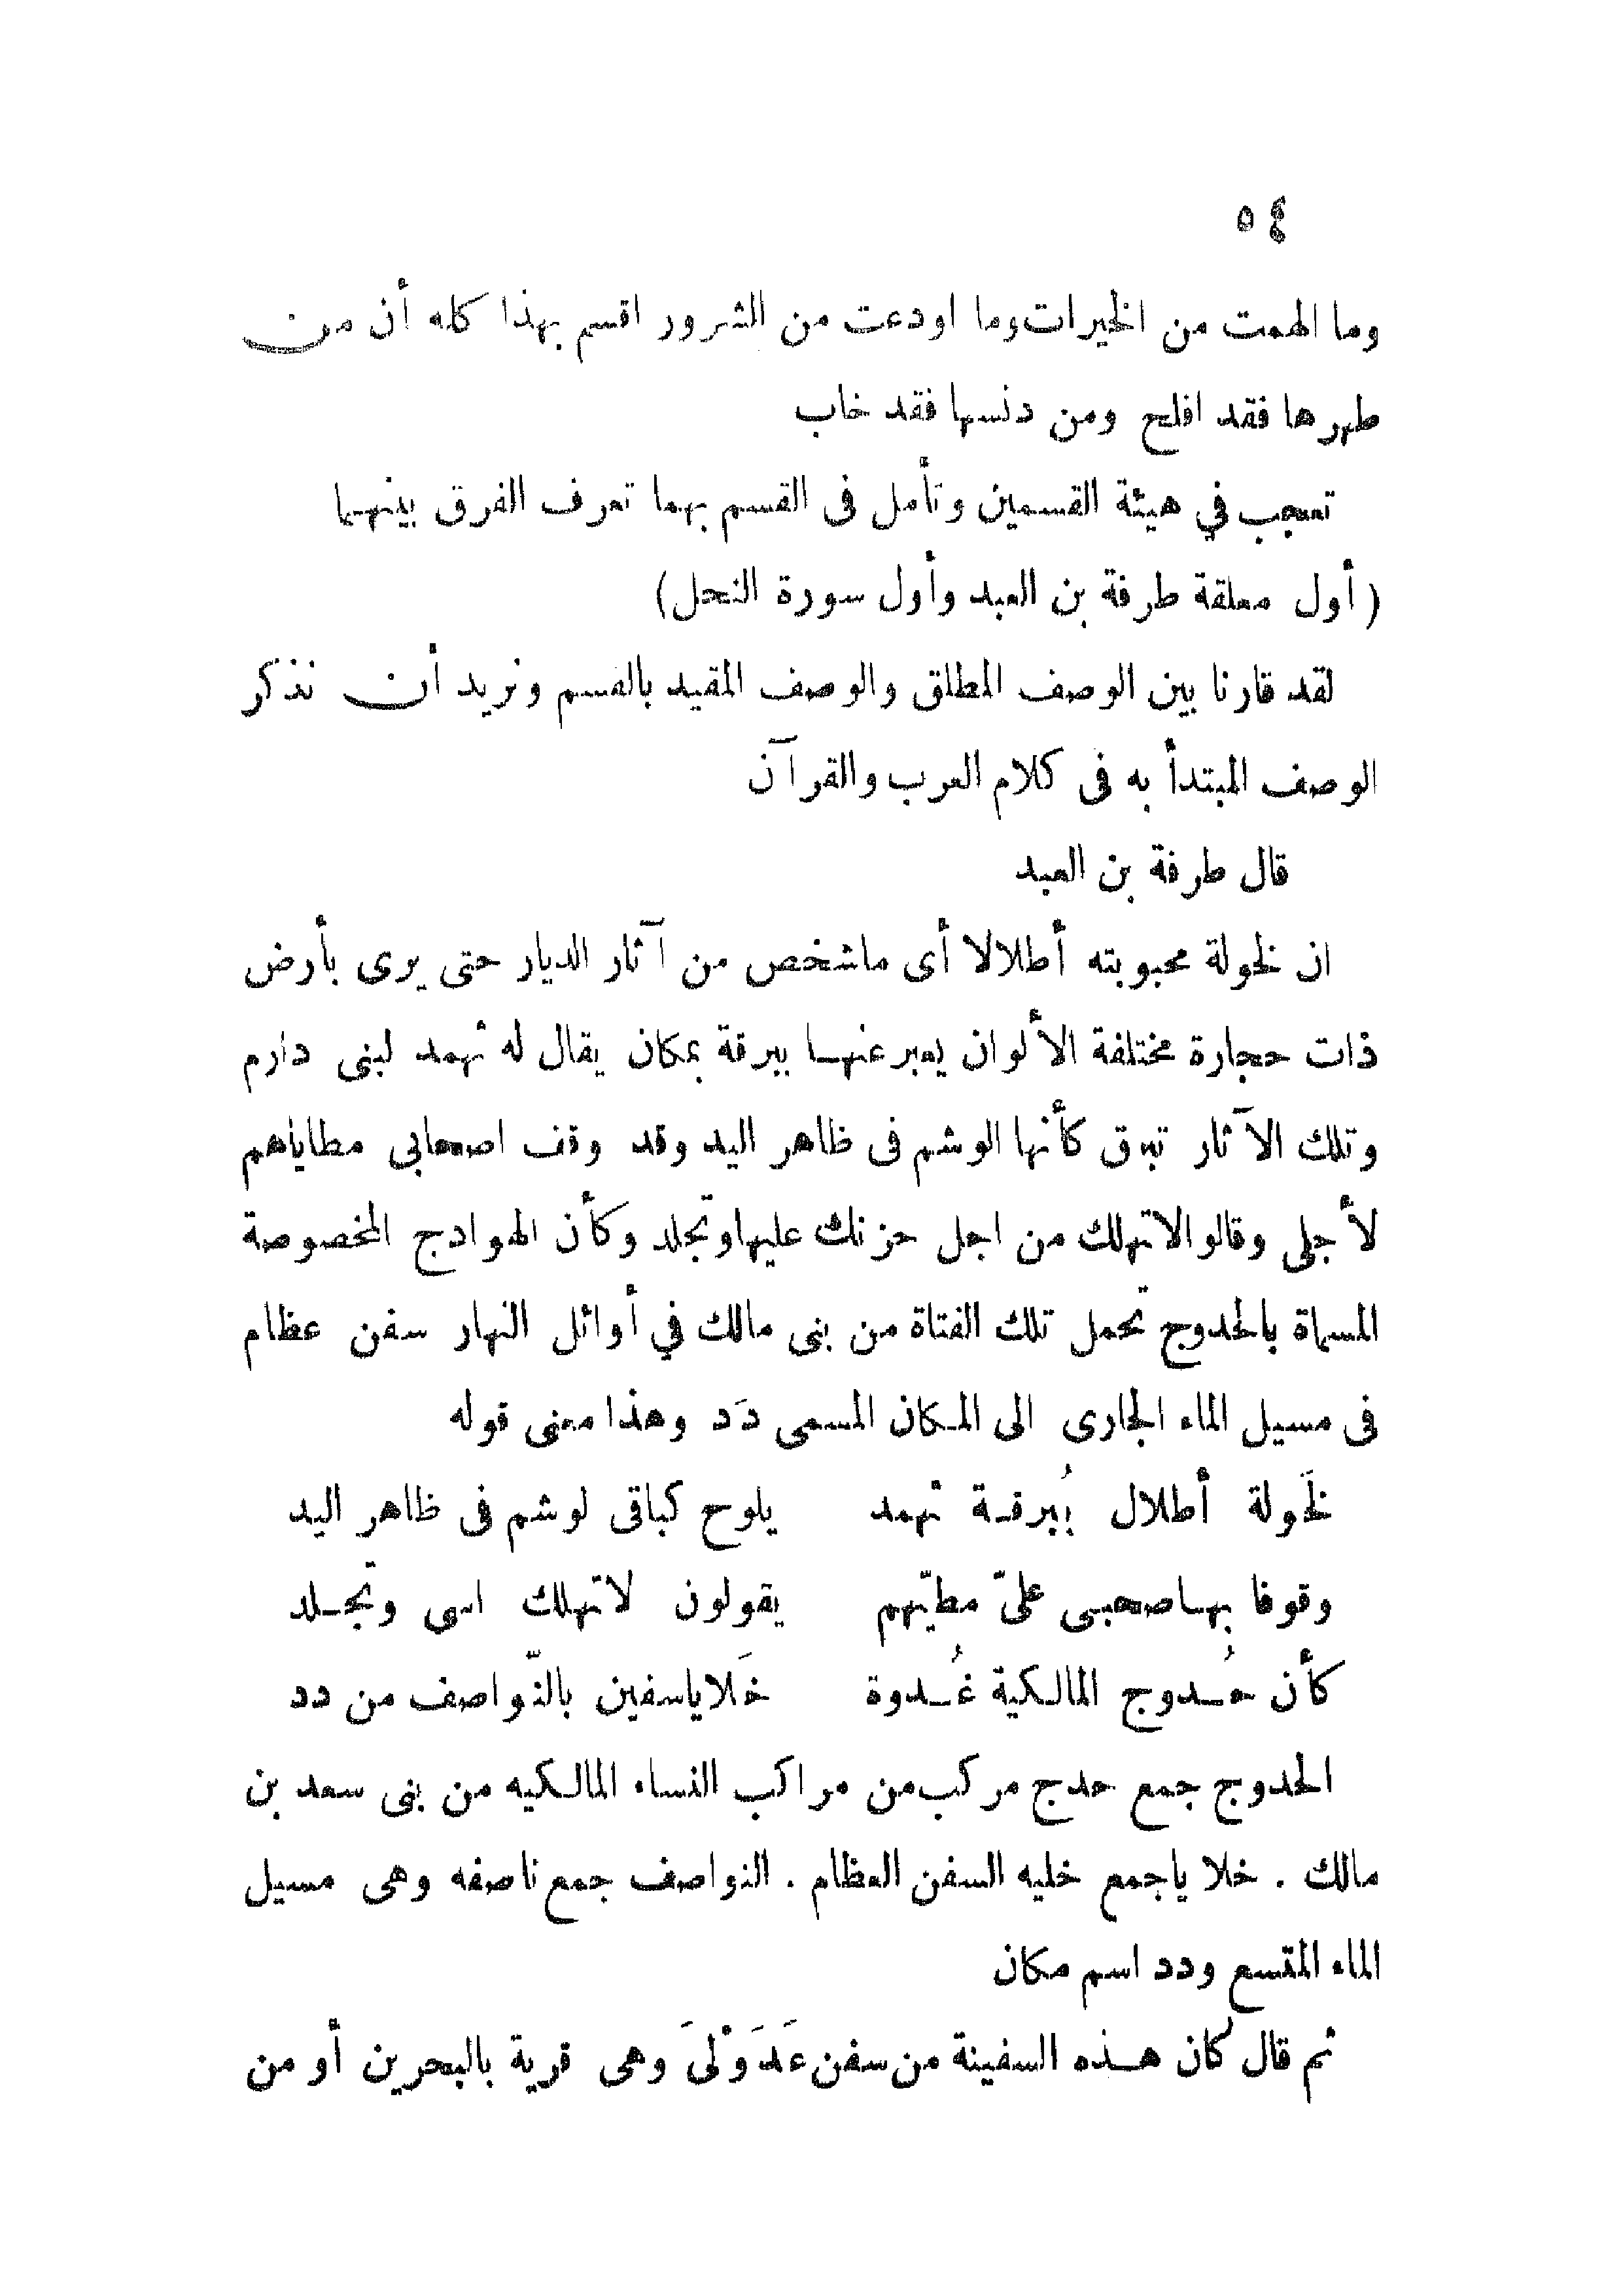 ٥٤
وما الهمت من الخيرات وما اودعت من الشرور اقسم بهذا كله أن من
طهرها فقد افلح ومن دنسها فقد خاب
تعجب في هيئة القسمين وتأمل فى القسم بهما تعرف الفرق بينهما
(أول معلقة طرفة بن العبد وأول سورة النحل)
لقد قارنا بين الوصف المطلق والوصف المقيد بالقسم ونريد أن نذكر
الوصف المبتدأ به فى كلام العرب والقرآن
قال طرفة بن العبد
ان لخولة محبوبته أطلالا أى ماشخص من آثار الديار حتى يرى بأرض
ذات حجارة مختلفة الألوان يعبر عنها ببرقة بمكان يقال له ثهمد لبنى دارم
وتلك الآثار تبرق كأنها الوشم فى ظاهر اليد وقد وقف اصحابى مطاياهم
لأجلى وقالوا لاتهلك من اجل حزنك عليها وتجلد وكأن الهوادج المخصوصة
المسماة بالحدوج تحمل تلك الفتاة من بنى مالك في أوائل النهار سفن عظام
فى مسيل الماء الجارى الى المكان المسمى دَد وهذا معنى قوله
لخَولة أطلال بِبُرقة ثهمد يلوح كباقى لوشم فى ظاهر اليد
وقوفا بها صحبى علىّ مطيّهم يقولون لاتهلك اسى وتجلد
كأن حُدوج المالكية غُدوة خَلايا سفين بالنّواصف من دد
الحدوج جمع حدج مركب من مراكب النساء المالكيه من بنى سعد بن
مالك . خلايا جمع خليه السفن العظام . النواصف جمع ناصفه وهى مسيل
الماء المتسع ودد اسم مكان
ثم قال كان هذه السفينة من سفن عَدَوْلىَ وهى قرية بالبحرين أو من